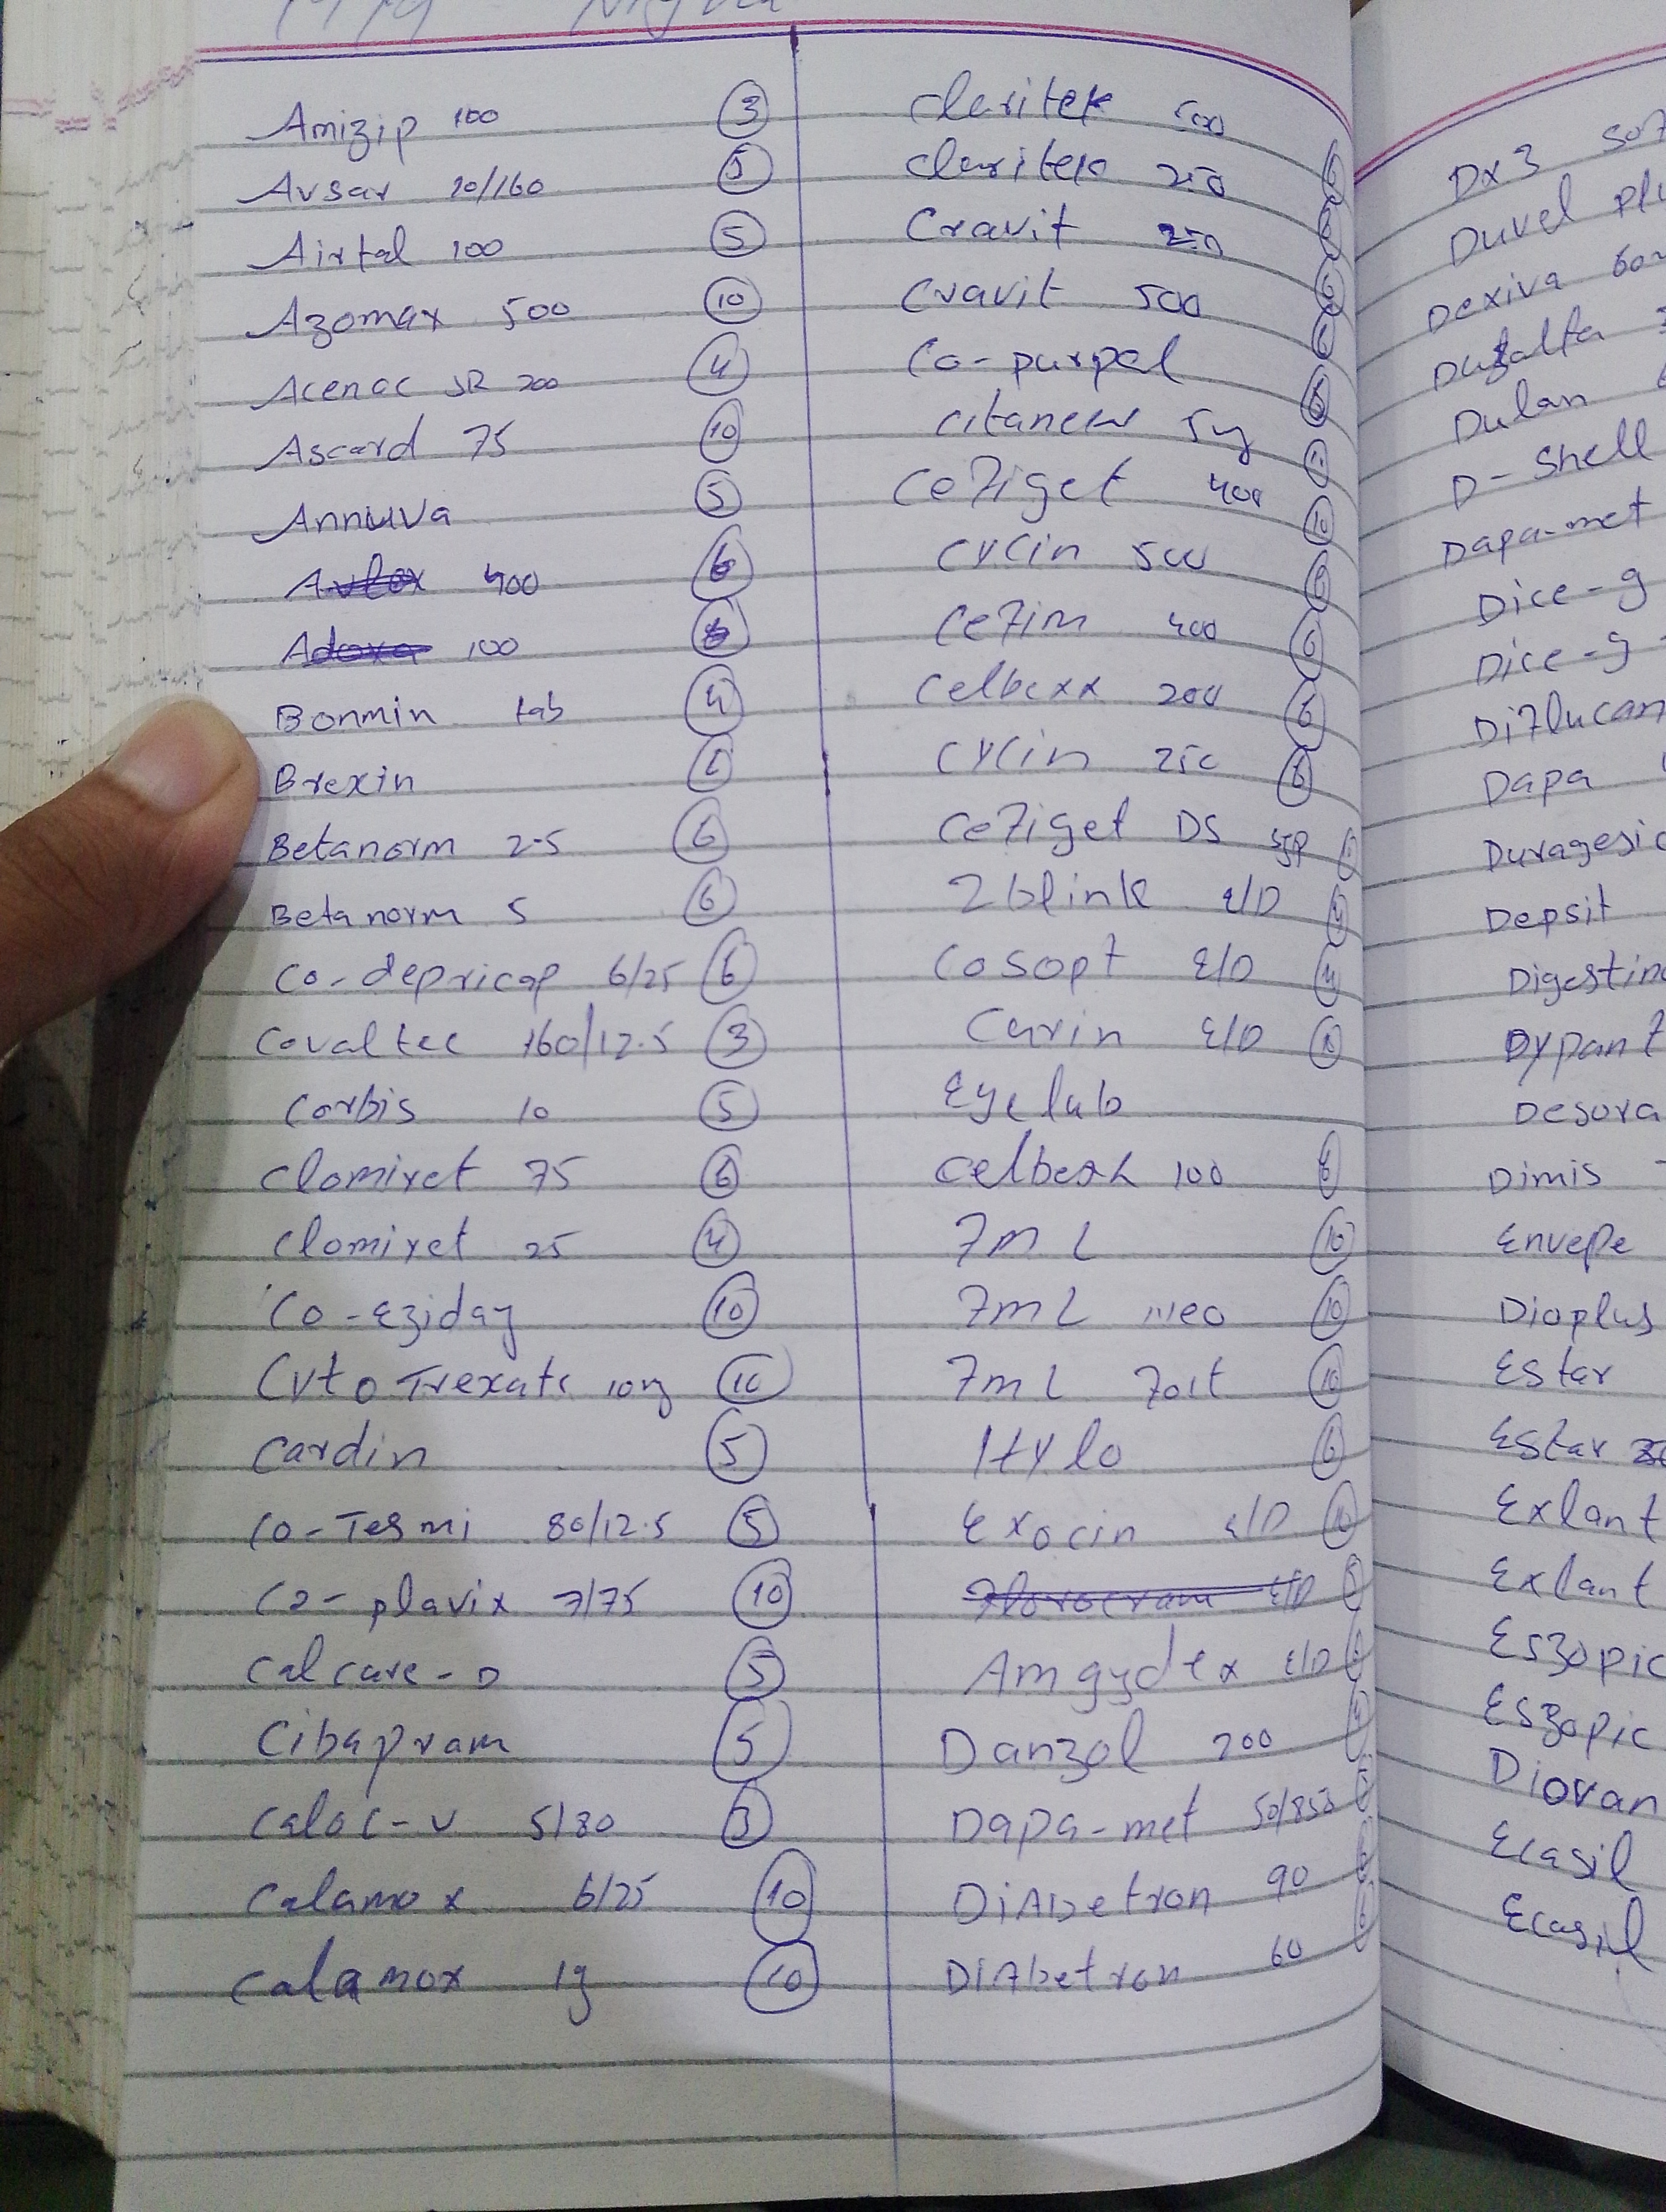 Amizip 100 3
Avsar 10/160 5
Airtal 100 5
Azomax 500 10
Acenac SR 200 4
Ascard 75 10
Annuva 5
Avlox 400 6
Adoxa 100
Bonmin tab 4
Brexin 6
Betanorm 2.5 6
Betanorm 5 6
Co-depricap 6/25 6
Covaltec 160/12.5 3
Corbis 10 5
Clomiret 75 6
Clomiret 25 4
Co-Eziday 10
Cyto Trexate 10mg 10
Cardin 5
Co-Tesmi 80/12.5 5
Co-plavix 7/75 10
Calcare-D 5
Cibapram 5
Caloc-V 5/80 3
Calamox 6/25 10
Calamox 1g 10
Claritek 500
Claritek 250
Cravit 250
Cravit 500
Co-purpel
Citanew 5mg
Cefiget 400 10
Cycin 500
Cefim 400 6
Celbexx 200 6
Cycin 250 6
Cefiget DS syp
2blink E/D
Cosopt E/D
Curin E/D
Eyelub
Celbexx 100
FML 10
FML Neo 10
FML Fort 10
Hylo 6
Exocin E/D 10
E/D
Amgydex E/D
Danzol 200
Dapa-met 50/850
Diabetron 90
Diabetron 60
Dx3
Duvel
Dexiva
Dulan
D-Shell
Dapa-met
Dice-g
Dice-g
Diflucan
Dapa
Duragesic
Depsit
Dimis
Envepe
Dioplus
Estar
Estar
Exlant
Exlant
Eszopic
Eszopic
Diovan
Ecasil
Ecasil